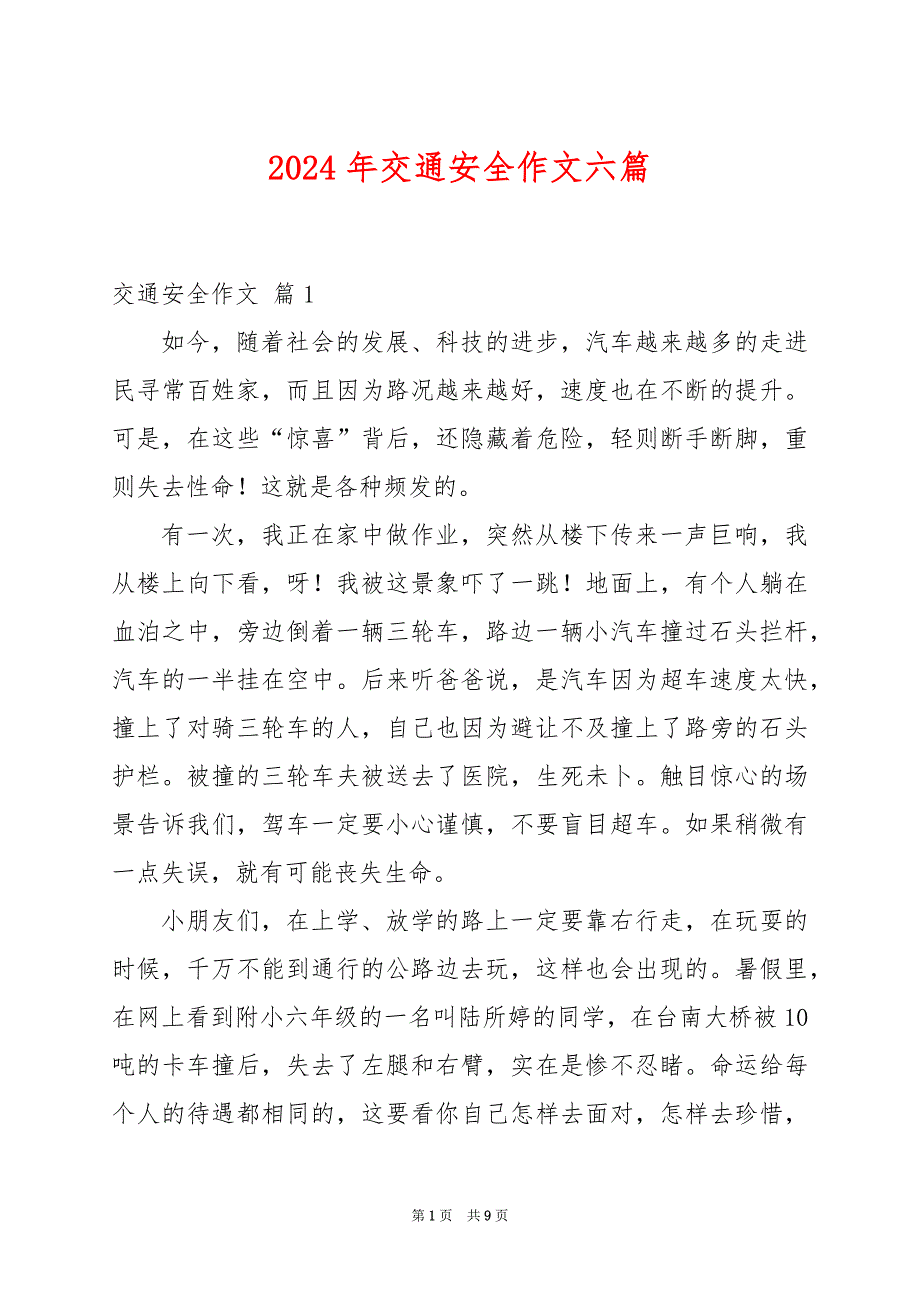 2024年交通安全作文六篇
交通安全作文 篇1
如今，随着社会的发展、科技的进步，汽车越来越多的走进
民寻常百姓家，而且因为路况越来越好，速度也在不断的提升。
可是，在这些“惊喜”背后，还隐藏着危险，轻则断手断脚，重
则失去性命！这就是各种频发的。
有一次，我正在家中做作业，突然从楼下传来一声巨响，我
从楼上向下看，呀！我被这景象吓了一跳！地面上，有个人躺在
血泊之中，旁边倒着一辆三轮车，路边一辆小汽车撞过石头拦杆，
汽车的一半挂在空中。后来听爸爸说，是汽车因为超车速度太快，
撞上了对骑三轮车的人，自己也因为避让不及撞上了路旁的石头
护栏。被撞的三轮车夫被送去了医院，生死未卜。触目惊心的场
景告诉我们，驾车一定要小心谨慎，不要盲目超车。如果稍微有
一点失误，就有可能丧失生命。
小朋友们，在上学、放学的路上一定要靠右行走，在玩耍的
时候，千万不能到通行的公路边去玩，这样也会出现的。暑假里，
在网上看到附小六年级的一名叫陆所婷的同学，在台南大桥被10
吨的卡车撞后，失去了左腿和右臂，实在是惨不忍睹。命运给每
个人的待遇都相同的，这要看你自己怎样去面对，怎样去珍惜，
第1页 共9页